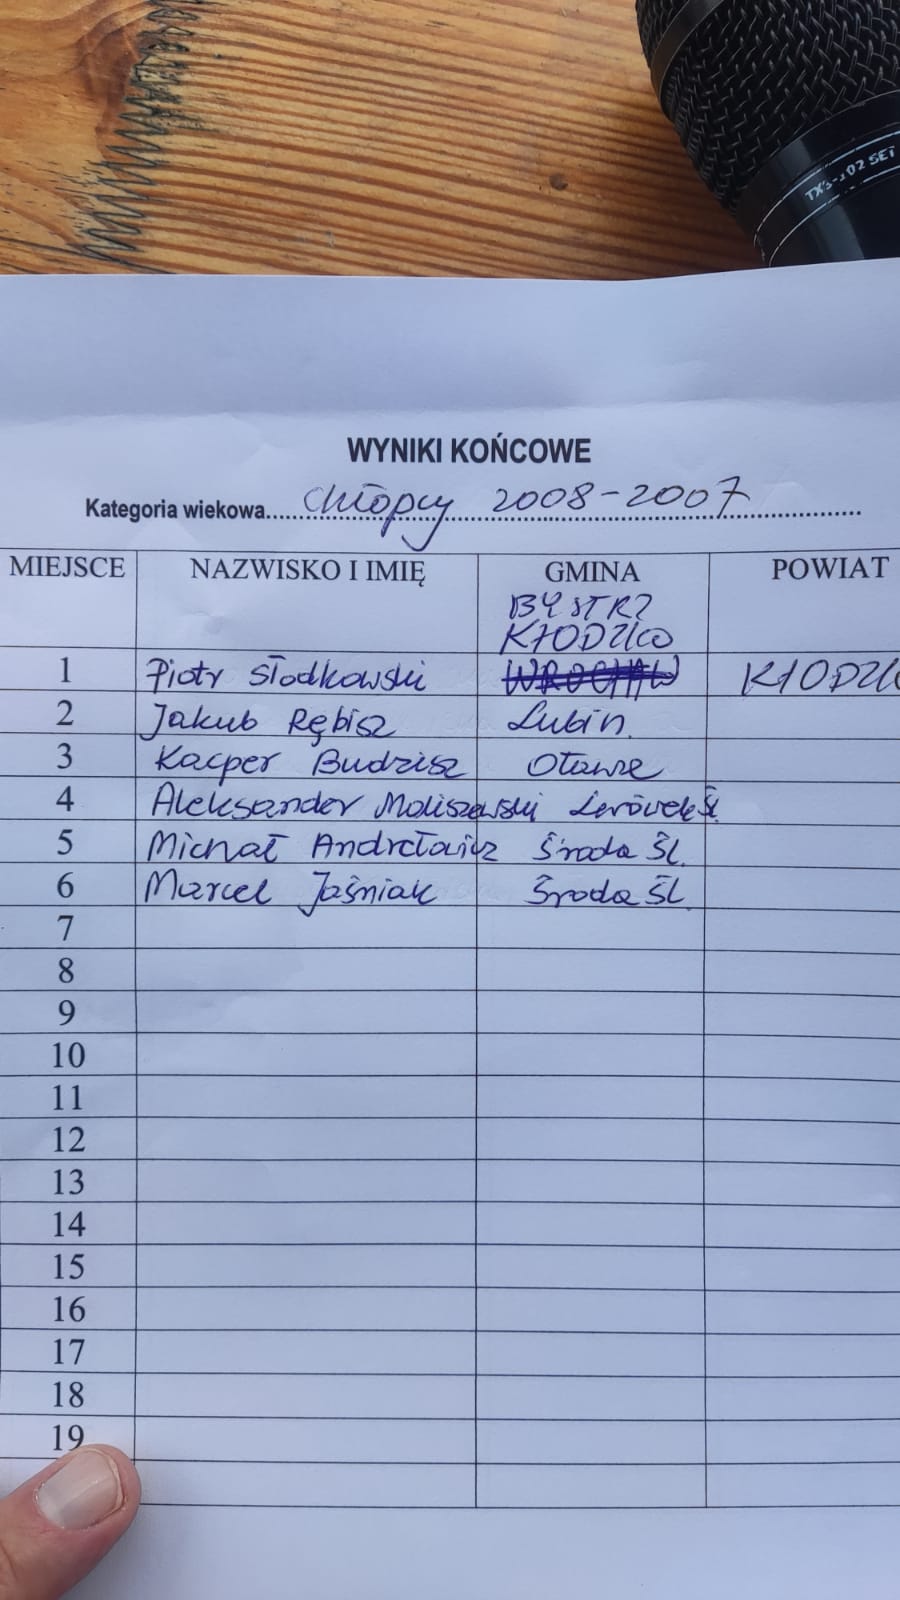 TXS-102 SET
WYNIKI KOŃCOWE
Kategoria wiekowa.....chłopcy 2008-2007
MIEJSCE NAZWISKO I IMIĘ GMINA POWIAT
BYSTRZ
KŁODZKO
1 Piotr Słodkowski WROCŁAW KŁODZKO
2 Jakub Rębisz Lubin.
3 Kacper Budzisz Oława
4 Aleksander Moliszewski Lwówek Śl.
5 Michał Środa Śl.
6 Marcel Jaśniak Środa Śl.
7
8
9
10
11
12
13
14
15
16
17
18
19